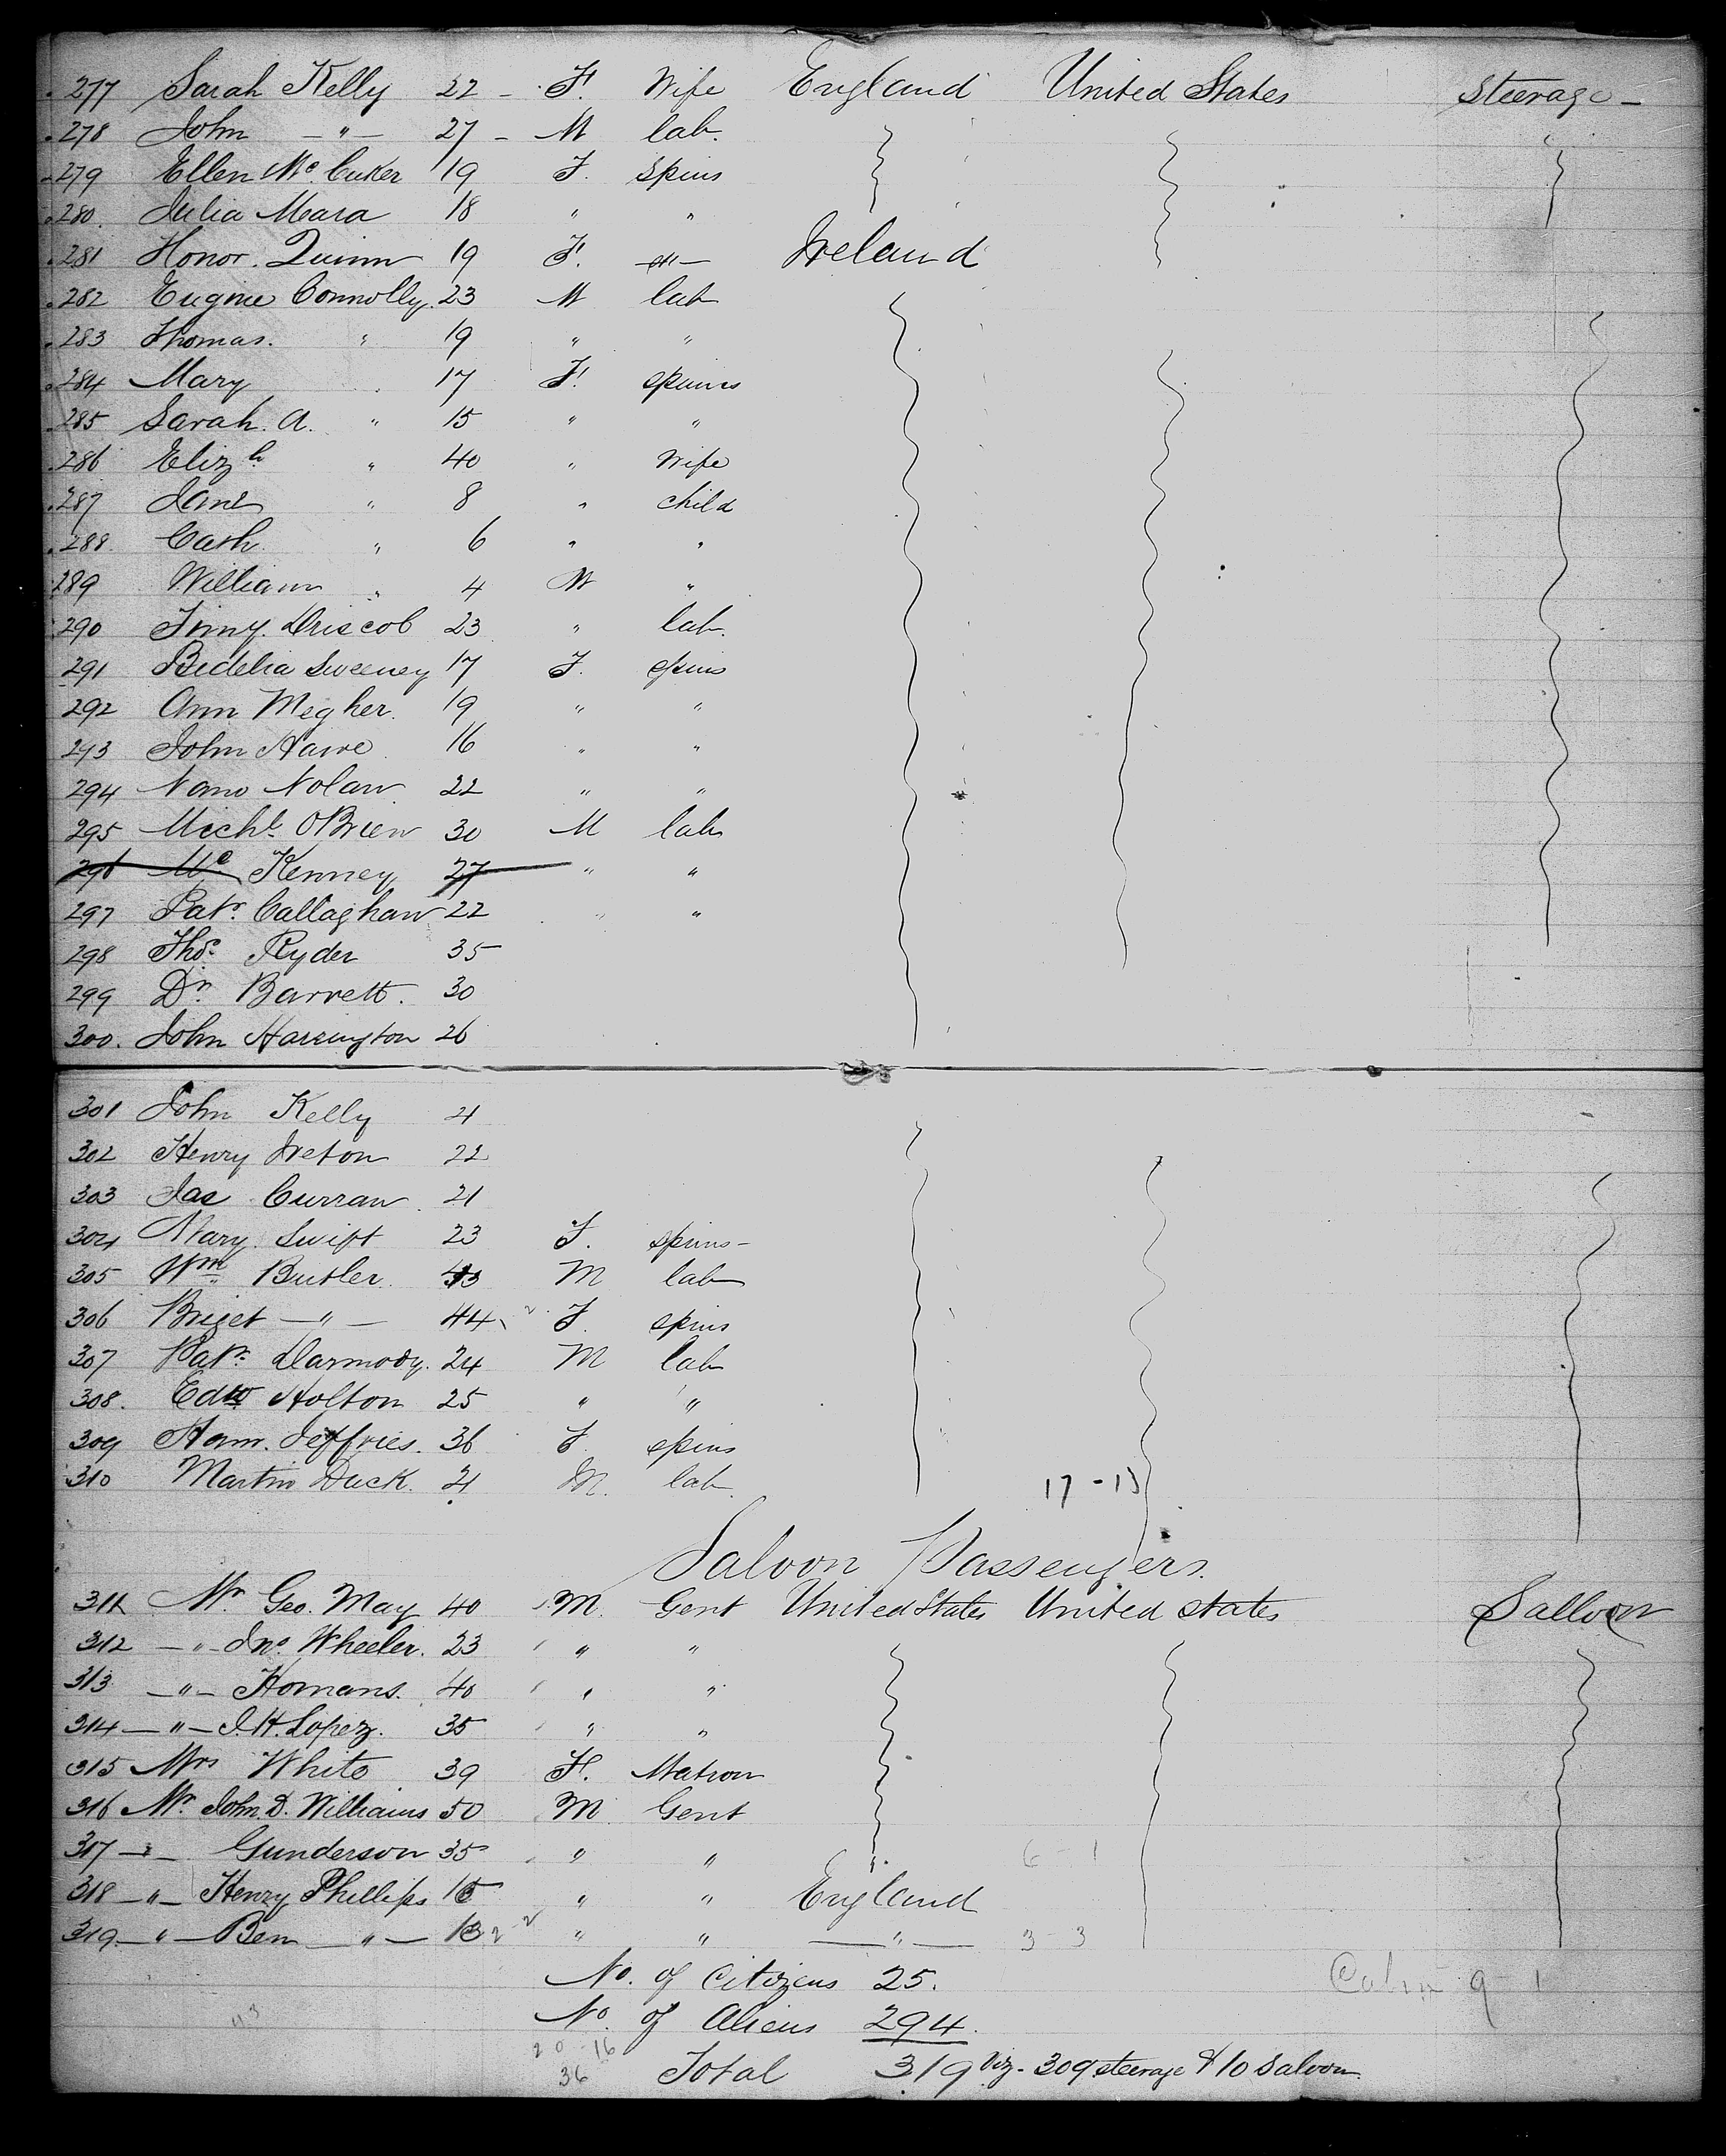 277 Sarah Kelly 22 - F. Wife England United States Steerage -
278 John - " - 27 - M lab.
279 Ellen Mc. Cuker 19 F. Spins
280. Julia Meara 18 " "
281 Honor. Quinn 19 F. - " - Ireland
282 Eugine Connolly. 23 M lab
283 Thomas. " 19 " "
284 Mary 17 F. spinns
285 Sarah. A. " 15 " "
286 Elizh " 40 " Wife
287 Jane " 8 " child
288. Cath. " 6 " "
289 William " 4 M "
290 Timy. Driscol 23 " lab.
291 Bidelia Sweeney 17 F. spins
292 Ann Megher. 19 " "
293 John 16 " "
294 Nano Nolan 22 " "
295 Michl. OBrien 30 M lab
296 Mc Kenney 27 " "
297 Patr. Callaghan 22 " "
298 Thos. Ryder 35
299 Dn. Barrett. 30
300. John Harrington 26
301 John Kelly 21
302 Henry Ireton 22
303 Jas Curran. 21
304 Mary. Swift 23 F. spins -
305 Wm Butler. M lab
306 Briget - " - 44 F. spins
307 Patr. Darmody. 24 M lab
308. Edw Holton 25 " "
309 Jeffries. 36 F. spins
310 Martin Duck. 21 M. lab.
17 - 13
Saloon Passengers.
311 Mr. Geo. May 40 M. Gent United States United states Salloon
312 - " - Jno. Wheeler. 23 " "
313 - " - Homans. 40 " "
314 - " - J. H. Lopez. 35 " "
315 Mrs White 39 F. Matron
316 Mr. John. D. Williams 50 M Gent
317 - " - Gunderson 35 " " 6 - 1
318 - " - Henry Phillips 15 " " England
319 - " - Ben - " - 13 " " - " - 3 - 3
No. of Citizens 25. Cabin 9 1
No. of Aliens 294.
20 - 16
36 Total 319 Viz - 309 steerage & 10 Saloon.